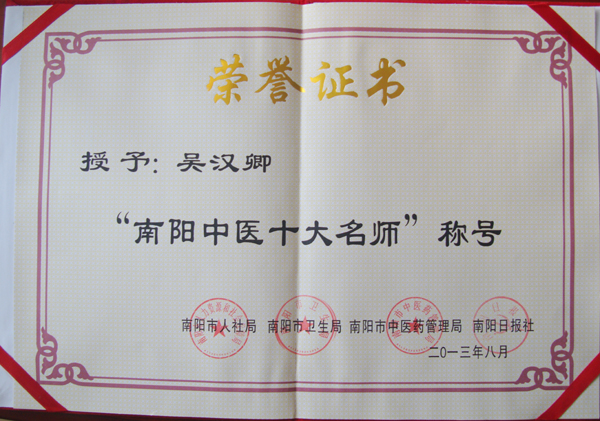 荣誉证书
授予：吴汉卿
“南阳中医十大名师”称号
南阳市人社局 南阳市卫生局 南阳市中医药管理局 南阳日报社
二〇一三年八月